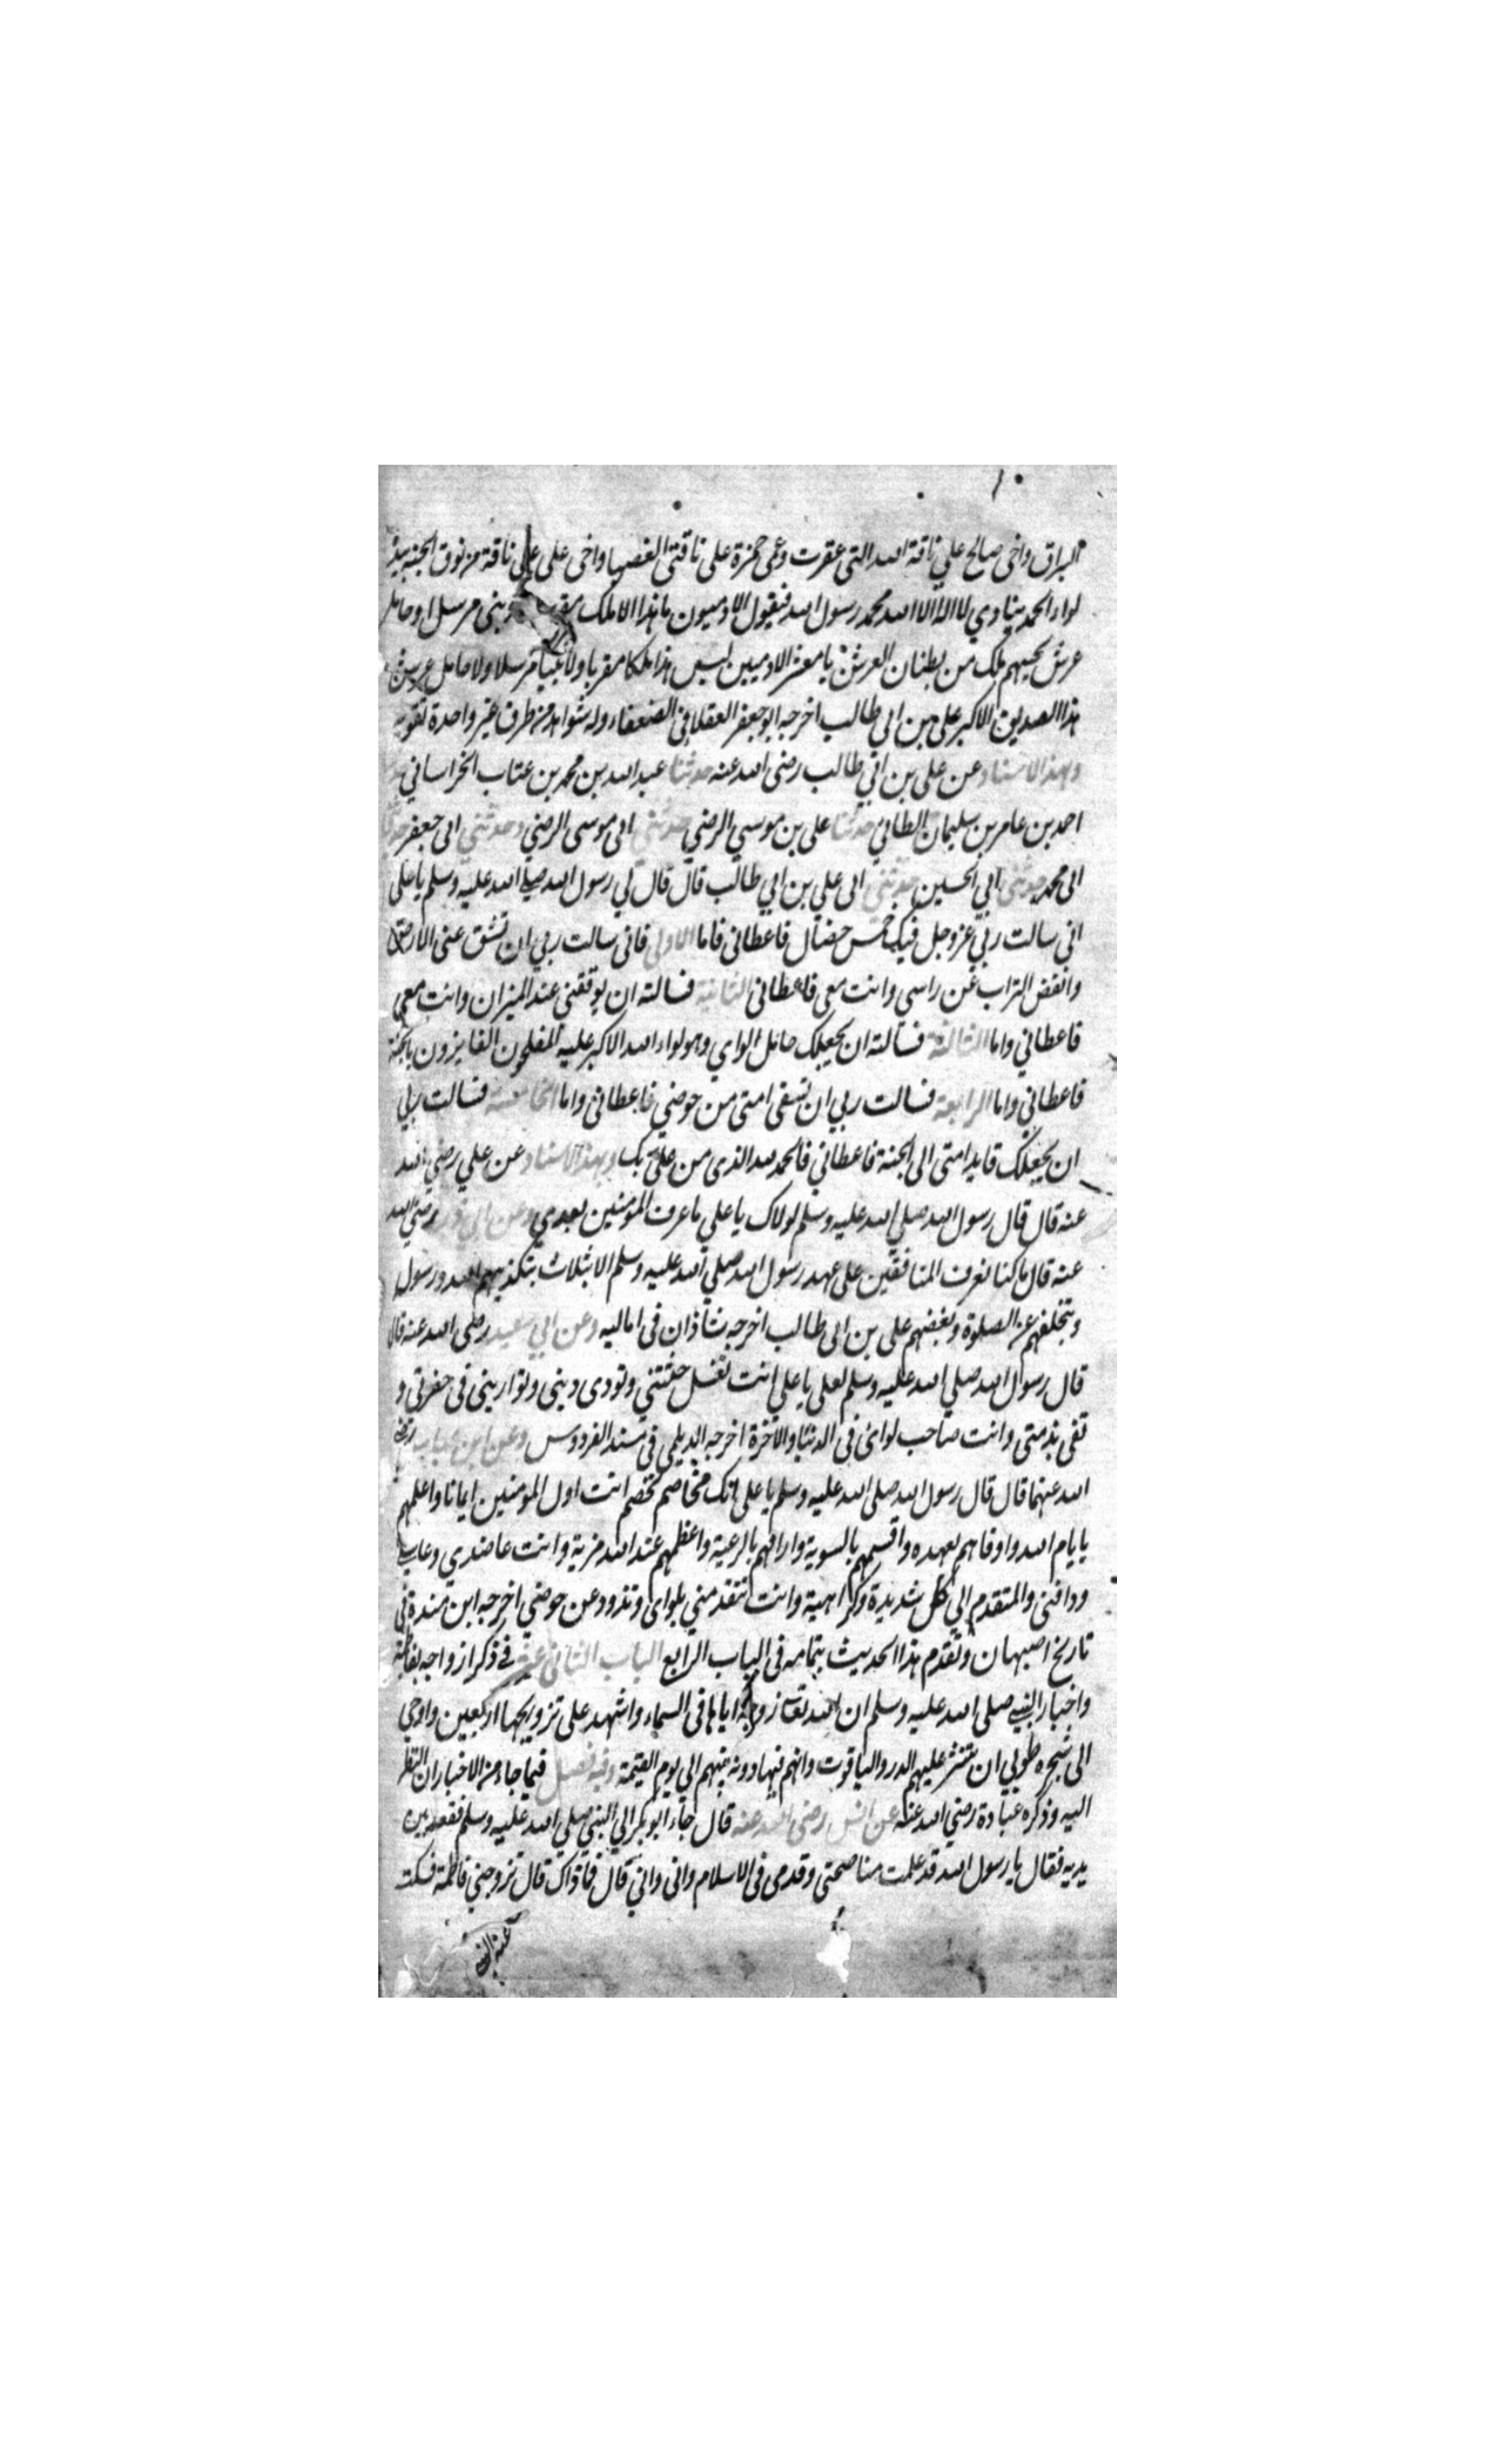 البراق واخي صالح علي ناقة الله التي عقرت وعمي حمزة علي ناقتي الغضبا واخي علي علي ناقة من نوق الجنة بيده
لواء الحمد ينادي لا اله الا الله محمد رسول الله فيقول الادميون ما هذا الا ملك مقرب ونبي مرسل او حامل
عرش يجيبهم ملك من بطنان العرش يا معشر الادميين ليس هذا ملكا مقربا ولا نبيا مرسلا ولا حامل عرش
هذا الصديق الاكبر علي بن ابي طالب اخرجه ابو جعفر العقيلي في الضعفاء وله شواهد من طرق غير واحدة تقويه
وبهذا الاسناد عن علي بن ابي طالب رضي الله عنه حدثنا عبد الله بن محمد بن عتاب الخراساني
احمد بن عامر بن سليمان الطائي حدثنا علي بن موسي الرضي حدثني ابي موسى الرضي وحدثني ابي جعفر
ابي محمد حدثني ابي الحسين حدثني ابي علي بن ابي طالب قال قال لي رسول الله صلي الله عليه وسلم يا علي
اني سالت ربي عز وجل فيك خمس خصال فاعطاني فاما الاولي فاني سالت ربي ان تنشق عني الارض
وانفض التراب عن راسي وانت معي فاعطاني الثانية فسالته ان يوقفني عند الميزان وانت معي
فاعطاني واما الثالثة فسالته ان يجعلك حامل لواي وهو لواء الله الاكبر عليه المفلحون الفايزون بالجنة
فاعطاني واما الرابعة فسالت ربي ان تسقى امتي من حوضي فاعطاني واما الخامسة فسالت ربي
ان يجعلك قايد امتي الى الجنة فاعطاني فالحمد لله الذي من علي بك وبهذا الاسناد عن علي رضي الله
عنه قال قال رسول الله صلي الله عليه وسلم لولاك يا علي ما عرف المؤمنين بعدي وعن ابي ذر رضي الله
عنه قال ما كنا نعرف المنافقين علي عهد رسول الله صلي الله عليه وسلم الا بثلاث بتكذيبهم الله ورسوله
وبتخلفهم عن الصلوة وبغضهم علي بن ابي طالب اخرجه شاذان في اماليه وعن ابي سعيد رضي الله عنه قال
قال رسول الله صلي الله عليه وسلم لعلي يا علي انت تغسل جثتي وتودى ديني وتواريني في حفرتي و
تفي بذمتي وانت صاحب لوائي في الدنيا والاخرة اخرجه الديلمي في مسند الفردوس وعن ابن عباس رضي
الله عنهما قال قال رسول الله صلي الله عليه وسلم يا علي انك مخاصم تخصم انت اول المؤمنين ايمانا واعلمهم
بايام الله واوفاهم بعهده واقسمهم بالسوية وارافهم بالرعية واعظمهم عند الله مزية وانت عاضدي وغاسلي
ودافني والمتقدم الي كل شديدة وكراهية وانت تتقدمني بلواي وتذود عن حوضي اخرجه ابن مندة في
تاريخ اصبهان وتقدم هذا الحديث بتمامه في الباب الرابع الباب الثاني عشر في ذكر ازواجه بفاطمة
واخبار النبي صلي الله عليه وسلم ان الله تعالى زوجه اياها في السماء واشهد علي تزويجها اربعين واوحي
الى شجره طوبي ان تنثر عليهم الدر والياقوت وانهم يتهادونه بينهم الي يوم القيمة وفيه فصل فيما جاء من الاخبار ان النظر
اليه وذكره عبادة رضي الله عنه عن انس رضي الله عنه قال جاء ابو بكر الي النبي صلي الله عليه وسلم فقعد بين
يديه فقال يا رسول الله قد علمت مناصحتي وقدمي في الاسلام واني واني قال فما ذاك قال تزوجني فاطمة فسكت